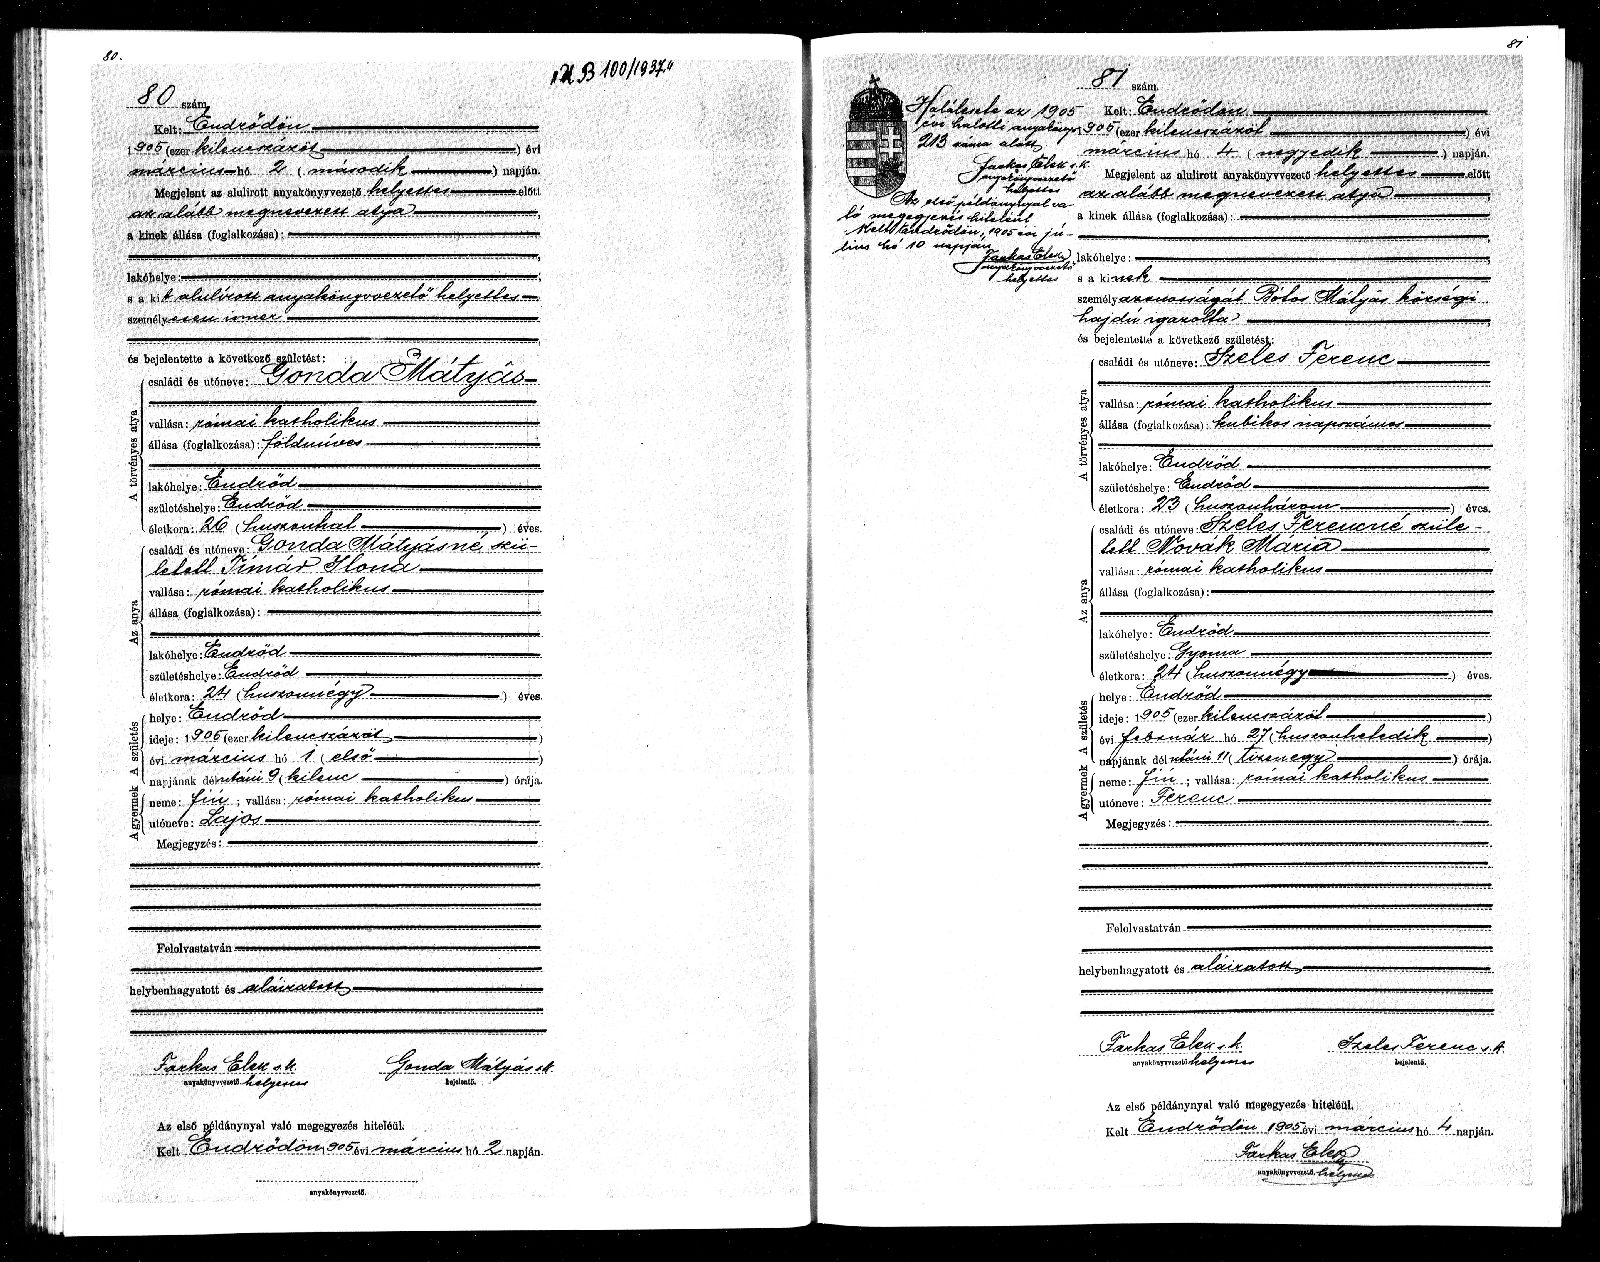 80.
"U B 100/1937"
80 szám.
Kelt: Endrődön
1905 (ezer kilenczázöt) évi
március hó 2 (második) napján.
Megjelent az alulirott anyakönyvvezető helyettes előtt
az alább megnevezett atya,
a kinek állása (foglalkozása):
lakóhelye:
s a kit alulírott anyakönyvvezető helyettes
személyesen ismer
és bejelentette a következő születést:
A törvényes atya
családi és utóneve: Gonda Mátyás
vallása: római katholikus
állása (foglalkozása): földmíves
lakóhelye: Endrőd
születéshelye: Endrőd
életkora: 26 (huszonhat) éves.
Az anya
családi és utóneve: Gonda Mátyásné szü-
letett Tímár Ilona
vallása: római katholikus
állása (foglalkozása):
lakóhelye: Endrőd
születéshelye: Endrőd
életkora: 24 (huszonnégy) éves.
A gyermek A születés
helye: Endrőd
ideje: 1905 (ezer kilenczázöt)
évi március hó 1 (első)
napjának délutáni 9 (kilenc) órája.
neme: fiú; vallása: római katholikus
utóneve: Lajos
Megjegyzés:
Felolvastatván
helybenhagyatott és aláiratott
Farkas Elek s.k. Gonda Mátyás s.k.
anyakönyvvezető helyettes bejelentő.
Az első példánynyal való megegyezés hiteléül.
Kelt Endrődön 1905 évi március hó 2 napján.
anyakönyvvezető.
81
Halálesete az 1905
évi halotti anyakönyv
213 száma alatt
Farkas Elek s.k.
anyakönyvvezető
helyettes
Az első példánynyal va-
ló megegyezés hiteléül
Kelt Endrődön, 1905 évi jú-
lius hó 10 napján
Farkas Elek
anyakönyvvezető
helyettes
81 szám.
Kelt: Endrődön
1905 (ezer kilenczázöt) évi
március hó 4 (negyedik) napján.
Megjelent az alulirott anyakönyvvezető helyettes előtt
az alább megnevezett atya
a kinek állása (foglalkozása):
lakóhelye:
s a kinek
személyazonosságát Bótos Mátyás községi
hajdú igazolta
és bejelentette a következő születést:
A törvényes atya
családi és utóneve: Szeles Ferenc
vallása: római katholikus
állása (foglalkozása): kubikos napszámos
lakóhelye: Endrőd
születéshelye: Endrőd
életkora: 23 (huszonhárom) éves.
Az anya
családi és utóneve: Szeles Ferencné szüle-
tett Novák Mária
vallása: római katholikus
állása (foglalkozása):
lakóhelye: Endrőd
születéshelye: Gyoma
életkora: 24 (huszonnégy) éves.
A gyermek A születés
helye: Endrőd
ideje: 1905 (ezer kilenczázöt)
évi február hó 27 (huszonhetedik)
napjának délutáni 11 (tizenegy) órája.
neme: fiú; vallása: római katholikus
utóneve: Ferenc
Megjegyzés:
Felolvastatván
helybenhagyatott és aláiratott
Farkas Elek s.k. Szeles Ferenc s.k.
anyakönyvvezető helyettes bejelentő.
Az első példánynyal való megegyezés hiteléül.
Kelt Endrődön 1905 évi március hó 4 napján.
Farkas Elek
anyakönyvvezető. helyettes